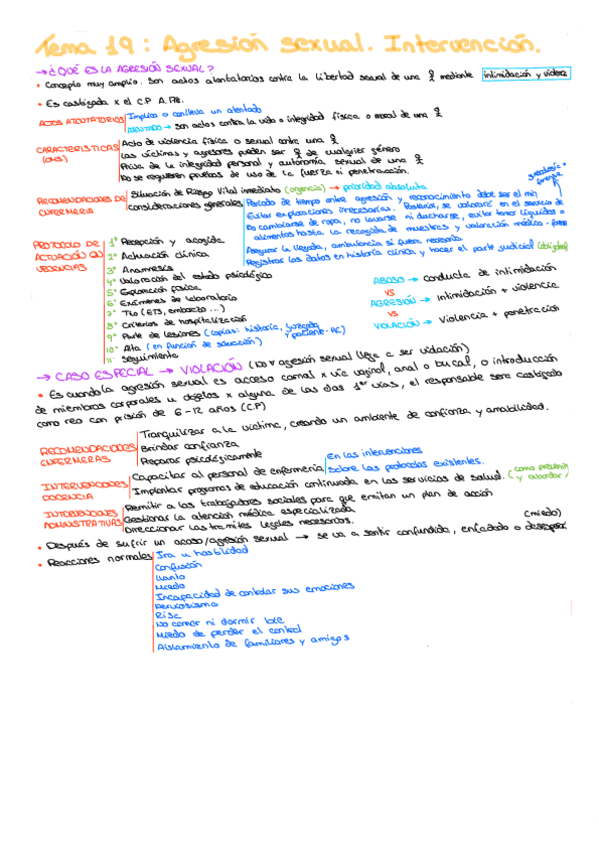 Tema 19: Agresión sexual. Intervención.
→ ¿QUÉ ES LA AGRESIÓN SEXUAL?
• Concepto muy amplio. Son actos atentatorios contra la libertad sexual de una mediante intimidación y violencia
• Es castigada x el C.P A.178.
ACTOS ATENTATORIOS Implica o conlleva un atentado
ATENTADO → son actos contra la vida o integridad física o moral de una
CARACTERÍSTICAS (OMS) Acto de violencia física o sexual contra una
Las víctimas y agresores pueden ser de cualquier género
Priva de la integridad personal y autonomía sexual de una
No se requieren pruebas de uso de la fuerza ni penetración.
RECOMENDACIONES DE ENFERMERÍA Situación de Riesgo Vital inmediato (urgencia) → prioridad absoluta
consideraciones generales Periodo de tiempo entre agresión y reconocimiento debe ser el min
Evitar exploraciones innecesarias. Posterior, se valorará en el servicio de ginecología + forense
No cambiarse de ropa, no lavarse ni ducharse, evitar tomar líquidos o
alimentos hasta la recogida de muestras y valoración médico-forense
Asegurar la llegada, ambulancia si fuera necesario
Registrar los datos en historia clínica y hacer el parte judicial (obligatorio)
PROTOCOLO DE ACTUACIÓN EN URGENCIAS
1º Recepción y acogida
2º Actuación clínica
3º Anamnesis
4º Valoración del estado psicológico
5º Exploración física
6º Exámenes de laboratorio
7º Tto (ETS, embarazo ...)
8º Criterios de hospitalización
9º Parte de lesiones (copias: historia, juzgado y paciente-HC)
10º Alta (en función de situación)
11º seguimiento
ABUSO → conducta de intimidación
VS
AGRESIÓN → intimidación + violencia
VS
VIOLACIÓN → Violencia + penetración
→ CASO ESPECIAL → VIOLACIÓN (No agresión sexual llega a ser violación)
• Es cuando la agresión sexual es acceso carnal x vía vaginal, anal o bucal, o introducción
de miembros corporales u objetos x alguna de las dos 1ªs vías, el responsable será castigado
como reo con prisión de 6-12 años (C.P)
RECOMENDACIONES ENFERMERAS Tranquilizar a la víctima, creando un ambiente de confianza y amabilidad.
Brindar confianza
Preparar psicológicamente
INTERVENCIONES DOCENCIA Capacitar al personal de enfermería En las intervenciones
Sobre los protocolos existentes.
Implantar programas de educación continuada en los servicios de salud. (como prevenir y abordar)
INTERVENCIONES ADMINISTRATIVAS Remitir a los trabajadores sociales para que emitan un plan de acción
Gestionar la atención médica especializada
Direccionar los trámites legales necesarios.
• Después de sufrir un acoso/agresión sexual → se va a sentir confundido, enfadado o (miedo)
• Reacciones normales Ira u hostilidad
Confusión
Llanto
Miedo
Incapacidad de controlar sus emociones
Nerviosismo
Risa
No comer ni dormir bien
Miedo de perder el control
Aislamiento de familiares y amigos